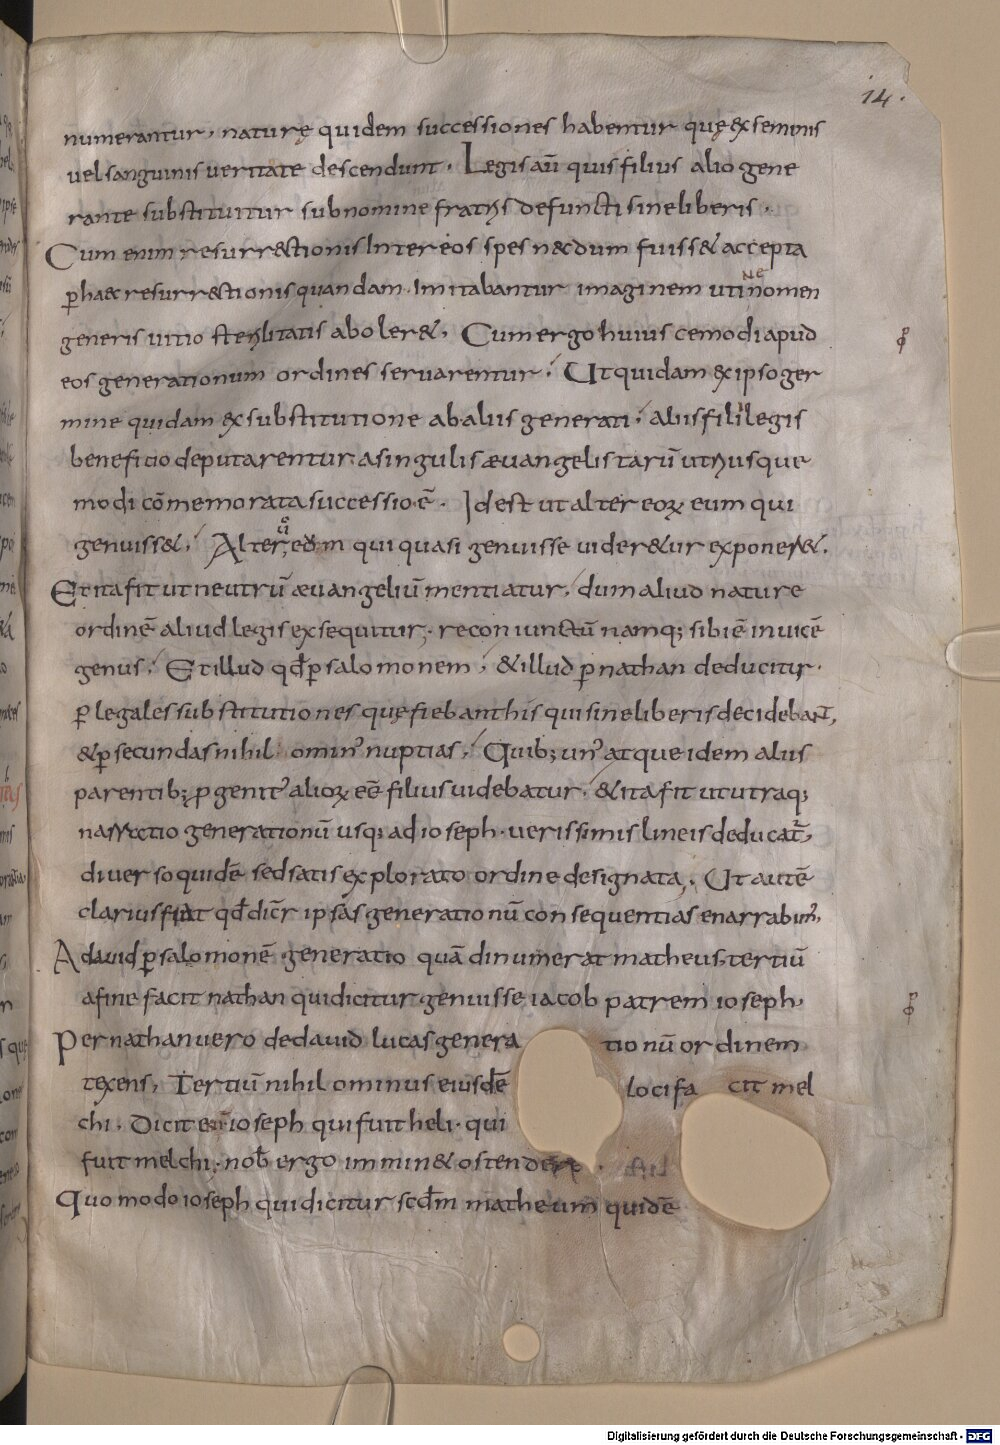 14.
numerantur, naturę quidem successiones habentur quę ex seminis
vel sanguinis veritate descendunt. Legis aũ quis filius alio gene
rante substituitur sub nomine fratris defuncti sine liberis.
Cum enim resurr&ctionis Inter eos spes necdum fuiss& accepta
ꝑ haec resurr&ctionis quandam. Imitabantur imaginem uti ne nomen
generis uitio sterilitatis aboler&, Cum ergo huiuscemodi apud
eos generationum ordines servarentur. Ut quidam & ipso ger
mine quidam ex substitutione ab aliis generati, aliis filii legis
beneficio deputarentur, a singulis æuangelistarũ utriusque
modi cõmemorata successio ẽ. Id est ut alter eoꝝ eum qui
genuiss&, Alter, eũ qui quasi genuisse uider&ur exponer&.
Et ita fit ut neutrũ æuangeliũ mentiatur, dum aliud nature
ordinẽ aliud legis exsequitur, reconiunctũ namq; sibi ẽ inuicẽ
genus, Et illud qđ ꝑ salomonem, & illud ꝑ nathan deducitur.
ꝑ legales substitutiones quę fiebant his qui sine liberis decidebant,
& ꝑ secundas nihil ominus nuptias, Quib; unus atque idem aliis
parentib; ꝓgenitus alioꝝ eẽ filius uidebatur, & ita fit ut utraq;
narratio generationũ usq; ad ioseph. verissimis lineis deducatur,
diverso quidẽ sed satis explorato ordine designata, Ut autẽ
clarius fiat qđ dicr̃ ipsas generationũ consequentias enarrabimus,
A dauid ꝑ salomonẽ generatio quã dinumerat matheus, tertiũ
a fine facit nathan qui dicitur genuisse iacob patrem ioseph,
Per nathan vero de dauid lucas genera tionũ ordinem
texens, Tertiũ nihil ominus eiusdẽ loci fa cit mel
chi, Dicit eñ ioseph qui fuit heli. qui
fuit melchi. nob̃ ergo immin& ostendere.
Quomodo ioseph qui dicitur scđm matheum quidẽ
Digitalisierung gefördert durch die Deutsche Forschungsgemeinschaft - DFG